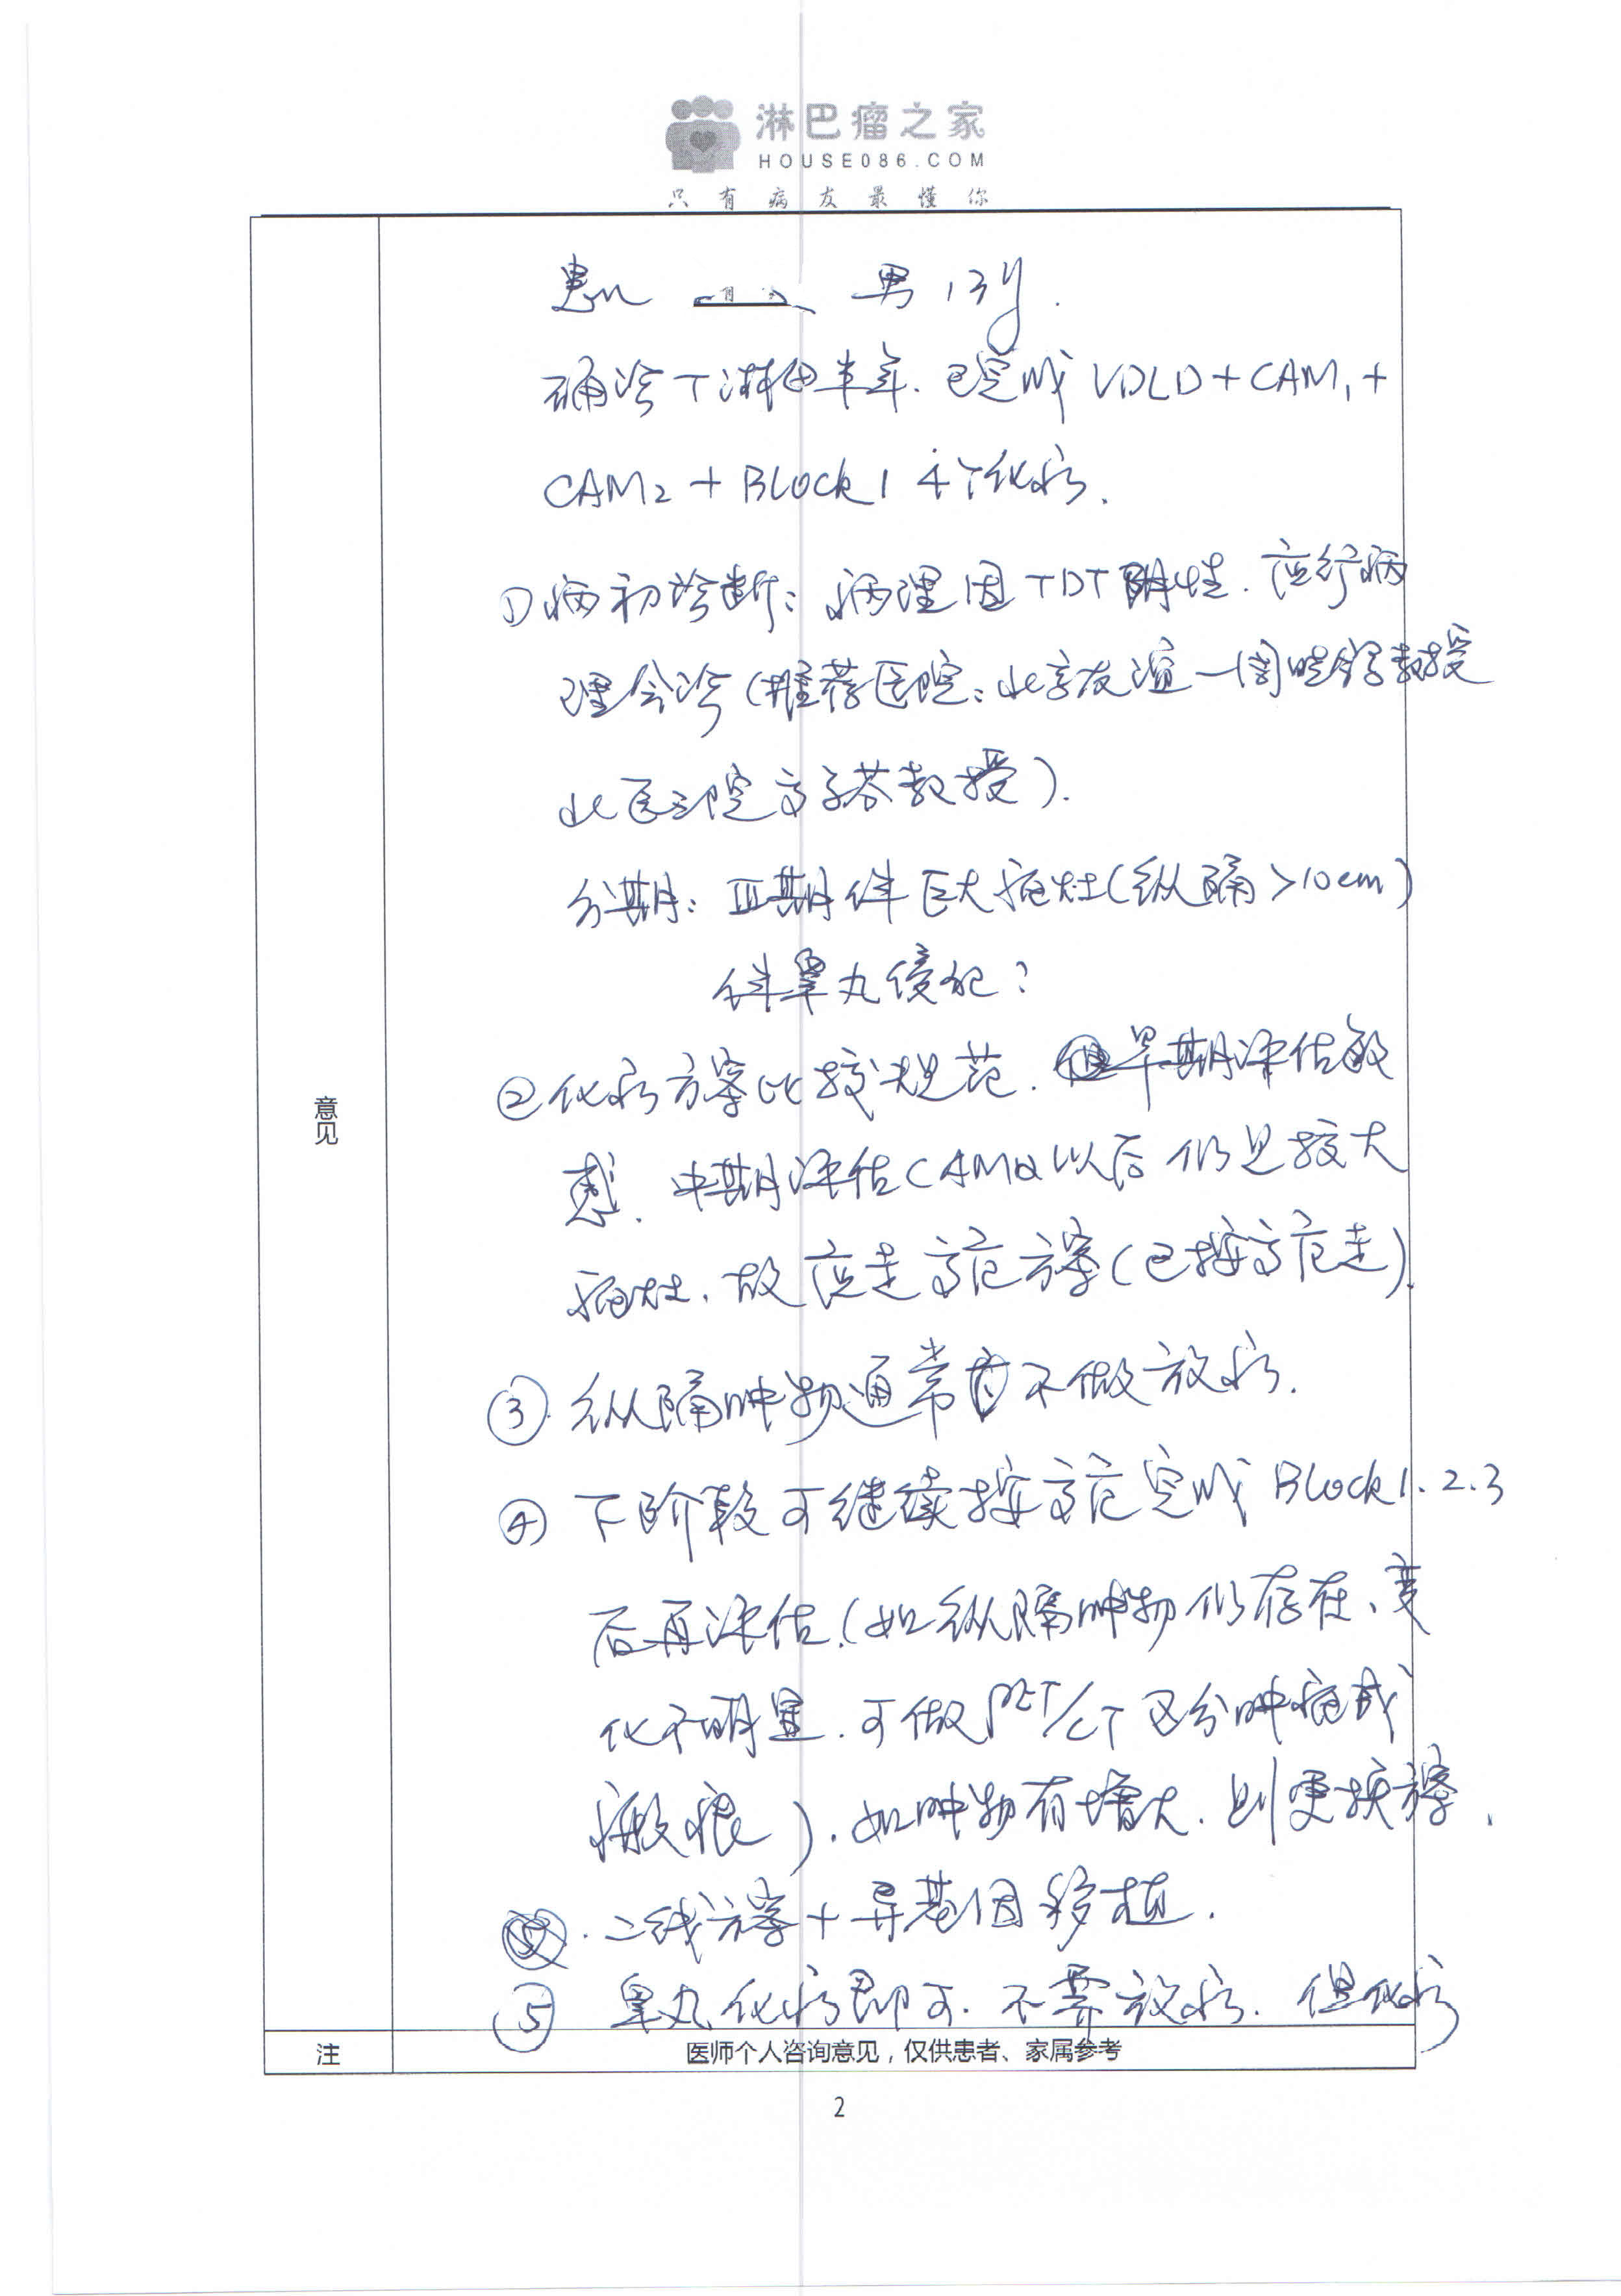 淋巴瘤之家
HOUSE086.COM
只有病友最懂你
患儿 男 13y.
确诊T淋母半年. 已完成 VDLD + CAM1 +
CAM2 + Block1 4个化疗.
① 病初诊断: 病理因TDT阴性. 应行病
理会诊 (推荐医院: 北京友谊-周小鸽教授
北医三院 高子芬教授).
分期: Ⅲ期伴巨大瘤灶(纵隔>10cm)
伴睾丸侵犯?
② 化疗方案比较规范. 早期评估敏
感. 中期评估CAM2以后仍见较大
瘤灶. 故应走高危方案(已按高危走).
意见
③. 纵隔肿物通常不做放疗.
④ 下阶段可继续按高危完成 Block1.2.3
后再评估.(如纵隔肿物仍存在、变
化不明显. 可做PET/CT区分肿瘤或
瘢痕). 如肿物有增大. 则更换方案.
. 二线方案 + 异基因移植.
⑤ 睾丸化疗即可. 不需放疗. 但化疗
注 医师个人咨询意见，仅供患者、家属参考
2